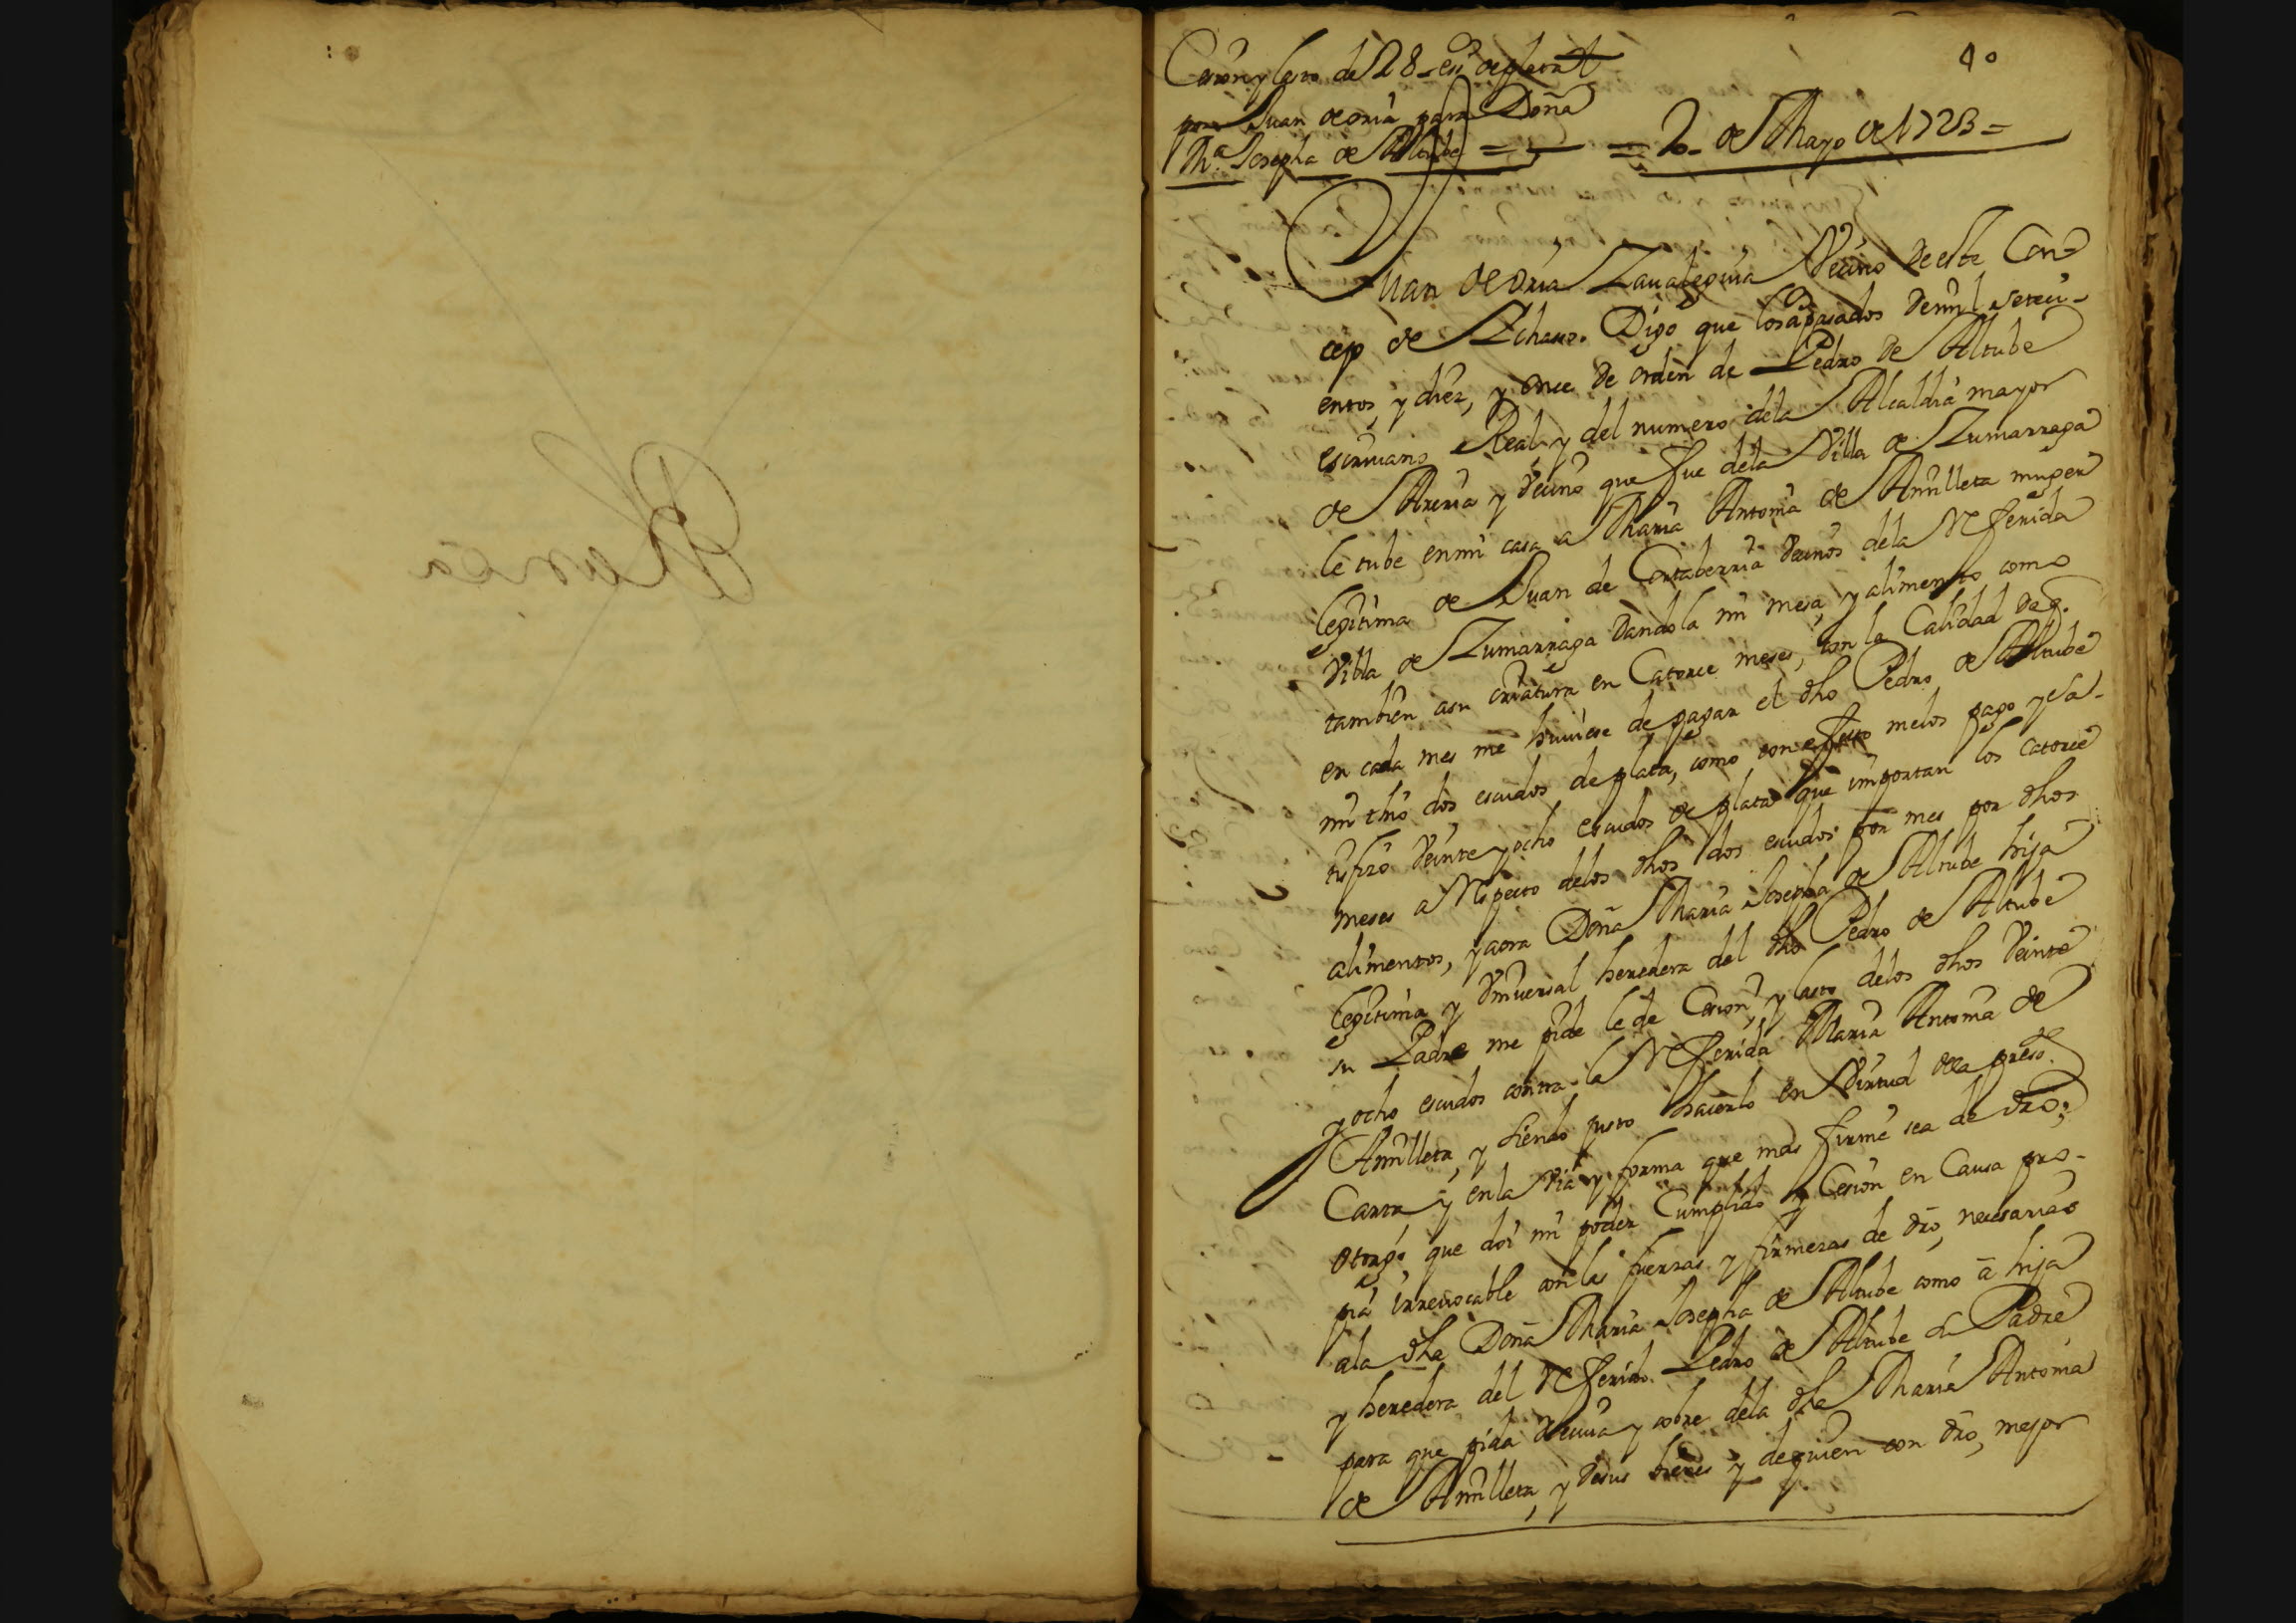 40
Cesion y lasto de 28 es.s de plata
por Juan de oria para Doña
M.a Josepha de Altube = — = 2 de Mayo de 1723 =
Juan de oria Zavaleguia Vecino de esta Con-
cep de Ychaso. Digo que los a pasados de mil seteci-
entos y diez, y once de orden de Pedro de Altube
escrivano Real y del numero dela Alcaldia mayor
de Areria y Vecino que fue dela Villa de Zumarraga
le tube en mi casa a Maria Antonia de Amilleta muger
legitima de Juan de Contaberria Vecinos dela Referida
Villa de Zumarraga dandola mi mesa, y alimento como
tambien asu criatura en Catorce meses, con la Calidad de q.
en cada mes me huviese de pagar el dho Pedro de Altube
mi thio dos escudos de plata, como con efecto melos pago y sa-
tisfizo Veinte y ocho escudos de plata que importan los Catorce
meses a Respecto delos dhos dos escudos por mes por dhos
alimentos, y aora Doña Maria Josepha de Altube hija
legitima y Vniversal heredera del dho Pedro de Altube
su Padre me pide le de Cesion, y lasto delos dhos Veinte
y ocho escudos contra la Referida Maria Antonia de
Amilleta, y siendo justo hacerlo en Virtud dela press.te
Carta y en la via y forma que mas firme sea de dro,
otorgo que doi mi poder Cumplido y Cesion en Causa pro-
pia irrevocable con las fuerzas y firmezas de dro, necesarias
ala dha Doña Maria Josepha de Altube como â hija
y heredera del Referido Pedro de Altube su Padre
para que pida Reciva y cobre dela dha Maria Antonia
de Amilleta, y de sus bienes y de quien con dro, mejor